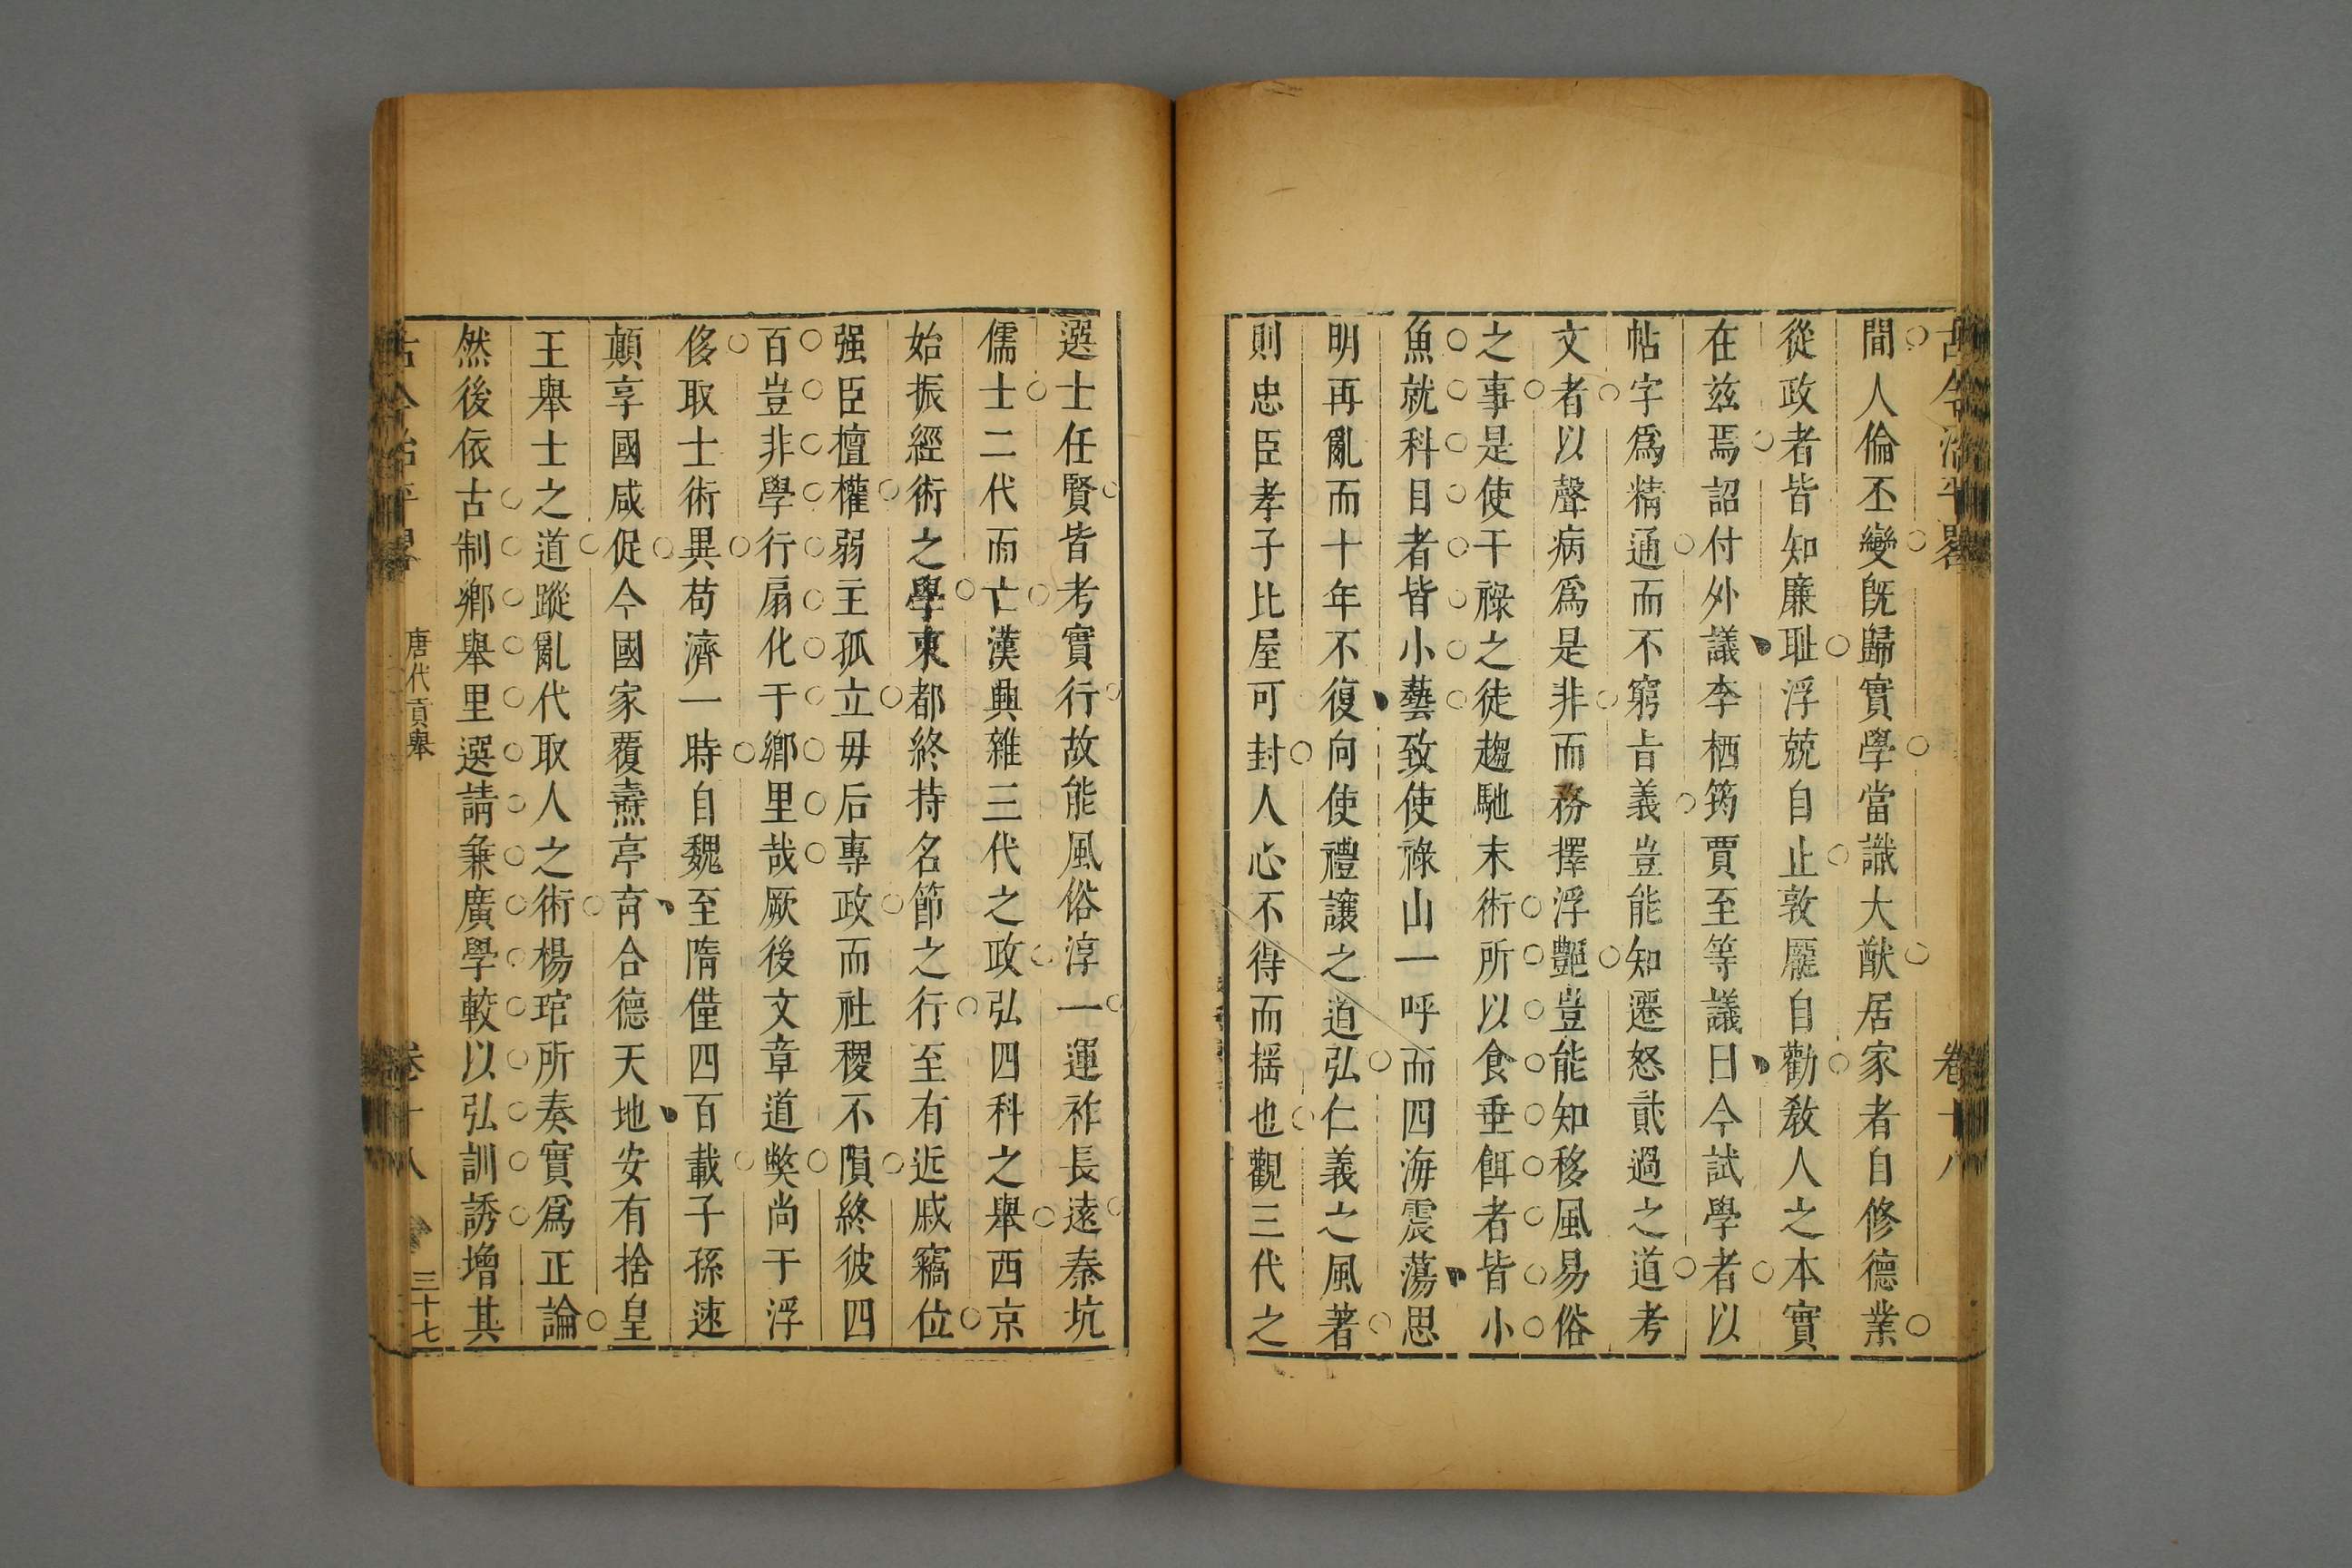 古今治平畧 卷十八
間人倫丕變旣歸實學當識大猷居家者自修德業
從政者皆知廉耻浮兢自止敦龎自勸教人之本實
在兹焉詔付外議李栖筠賈至等議曰今試學者以
帖字爲精通而不窮㫖義豈能知遷怒貳過之道考
文者以聲病爲是非而務擇浮艷豈能知移風易俗
之事是使干祿之徒趨馳末術所以食垂餌者皆小
魚就科目者皆小藝致使祿山一呼而四海震蕩思
明再亂而十年不復向使禮讓之道弘仁義之風著
則忠臣孝子比屋可封人心不得而揺也觀三代之
選士任賢皆考實行故能風俗淳一運祚長遠秦坑
儒士二代而亡漢興雜三代之政弘四科之舉西京
始振經術之學東都終持名節之行至有近戚竊位
强臣擅權弱主孤立毋后專政而社稷不隕終彼四
百豈非學行扇化于鄉里哉厥後文章道弊尚于浮
侈取士術異苟濟一時自魏至隋僅四百載子孫速
顛享國咸促今國家覆燾亭育合德天地安有捨皇
王舉士之道蹤亂代取人之術楊琯所奏實爲正論
然後依古制鄉舉里選請兼廣學較以弘訓誘增其
古今治平畧 唐代貢舉 卷十八 三十七